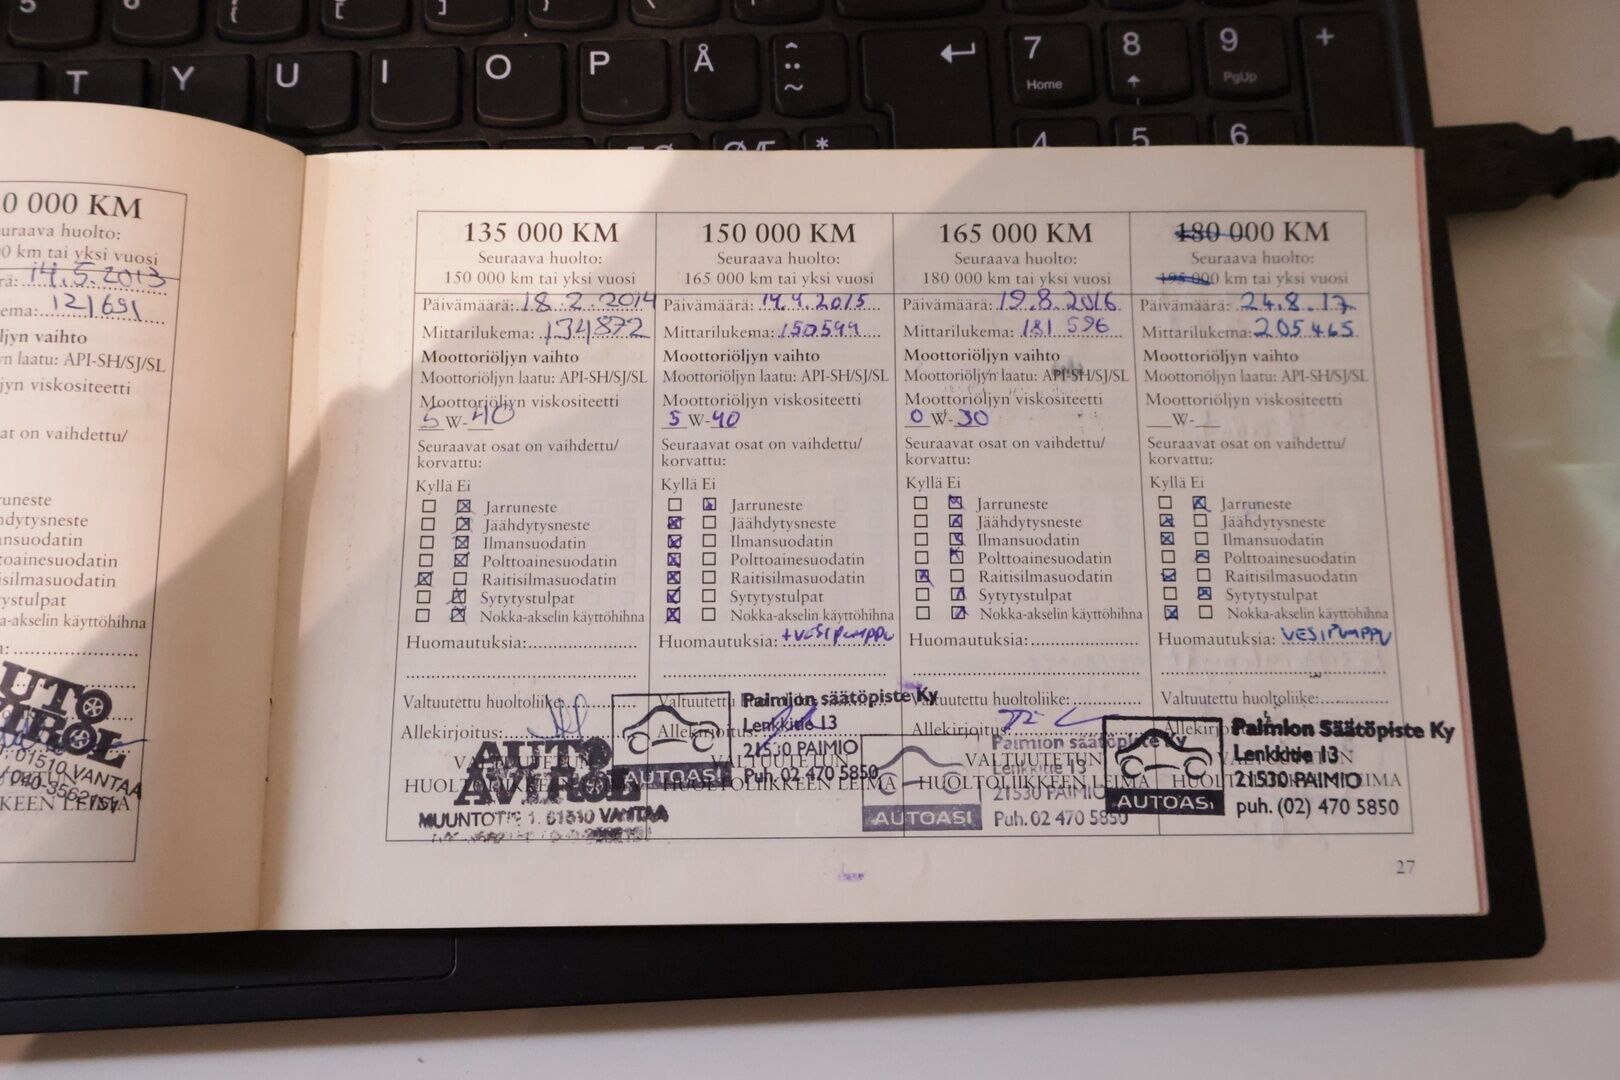 T Y U I O P Å ^ ¨ ~
7 Home 8 9 PgUp +
4 5 6
*
0 000 KM
uraava huolto:
00 km tai yksi vuosi
rä: 14.5.2013
ema: 121691
ljyn vaihto
n laatu: API-SH/SJ/SL
jyn viskositeetti
at on vaihdettu/
runeste
hdytysneste
ansuodatin
toainesuodatin
isilmasuodatin
tystulpat
a-akselin käyttöhihna
UTO
VIROL
01510 VANTAA
KKEEN LEIMA
135 000 KM
Seuraava huolto:
150 000 km tai yksi vuosi
Päivämäärä: 18.2.2014
Mittarilukema: 134872
Moottoriöljyn vaihto
Moottoriöljyn laatu: API-SH/SJ/SL
Moottoriöljyn viskositeetti
5 W-40
Seuraavat osat on vaihdettu/
korvattu:
Kyllä Ei
☐ ☒ Jarruneste
☐ ☒ Jäähdytysneste
☐ ☒ Ilmansuodatin
☐ ☒ Polttoainesuodatin
☒ ☐ Raitisilmasuodatin
☐ ☒ Sytytystulpat
☐ ☒ Nokka-akselin käyttöhihna
Huomautuksia:
Valtuutettu huoltoliike:
Allekirjoitus:
VALTUUTETUN
HUOLTOLIIKKEEN LEIMA
AUTO
AVIROL
MUUNTOTIE 1. 01510 VANTAA
150 000 KM
Seuraava huolto:
165 000 km tai yksi vuosi
Päivämäärä: 14.4.2015
Mittarilukema: 150544
Moottoriöljyn vaihto
Moottoriöljyn laatu: API-SH/SJ/SL
Moottoriöljyn viskositeetti
5 W-40
Seuraavat osat on vaihdettu/
korvattu:
Kyllä Ei
☐ ☒ Jarruneste
☒ ☐ Jäähdytysneste
☒ ☐ Ilmansuodatin
☒ ☐ Polttoainesuodatin
☒ ☐ Raitisilmasuodatin
☒ ☐ Sytytystulpat
☒ ☐ Nokka-akselin käyttöhihna
Huomautuksia: +VESIPUMPPU
Valtuutettu
Allekirjoitus:
VALTUUTETUN
HUOLTOLIIKKEEN LEIMA
Paimion säätöpiste Ky
Lenkkitie 13
21530 PAIMIO
Puh. 02 470 5850
AUTOASI
165 000 KM
Seuraava huolto:
180 000 km tai yksi vuosi
Päivämäärä: 19.8.2016
Mittarilukema: 181 596
Moottoriöljyn vaihto
Moottoriöljyn laatu: API-SH/SJ/SL
Moottoriöljyn viskositeetti
0 W-30
Seuraavat osat on vaihdettu/
korvattu:
Kyllä Ei
☐ ☒ Jarruneste
☐ ☒ Jäähdytysneste
☐ ☒ Ilmansuodatin
☐ ☒ Polttoainesuodatin
☒ ☐ Raitisilmasuodatin
☐ ☒ Sytytystulpat
☐ ☒ Nokka-akselin käyttöhihna
Huomautuksia:
Valtuutettu huoltoliike:
Allekirjoitus:
VALTUUTETUN
HUOLTOLIIKKEEN LEIMA
Paimion säätöpiste Ky
Lenkkitie 13
21530 PAIMIO
Puh. 02 470 5850
AUTOASI
180 000 KM
Seuraava huolto:
195 000 km tai yksi vuosi
Päivämäärä: 24.8.17
Mittarilukema: 205465
Moottoriöljyn vaihto
Moottoriöljyn laatu: API-SH/SJ/SL
Moottoriöljyn viskositeetti
__W-__
Seuraavat osat on vaihdettu/
korvattu:
Kyllä Ei
☐ ☒ Jarruneste
☒ ☐ Jäähdytysneste
☒ ☐ Ilmansuodatin
☐ ☒ Polttoainesuodatin
☒ ☐ Raitisilmasuodatin
☐ ☒ Sytytystulpat
☒ ☐ Nokka-akselin käyttöhihna
Huomautuksia: VESIPUMPPU
Valtuutettu huoltoliike:
Paimion Säätöpiste Ky
Lenkkitie 13
21530 PAIMIO
puh. (02) 470 5850
AUTOASI
27